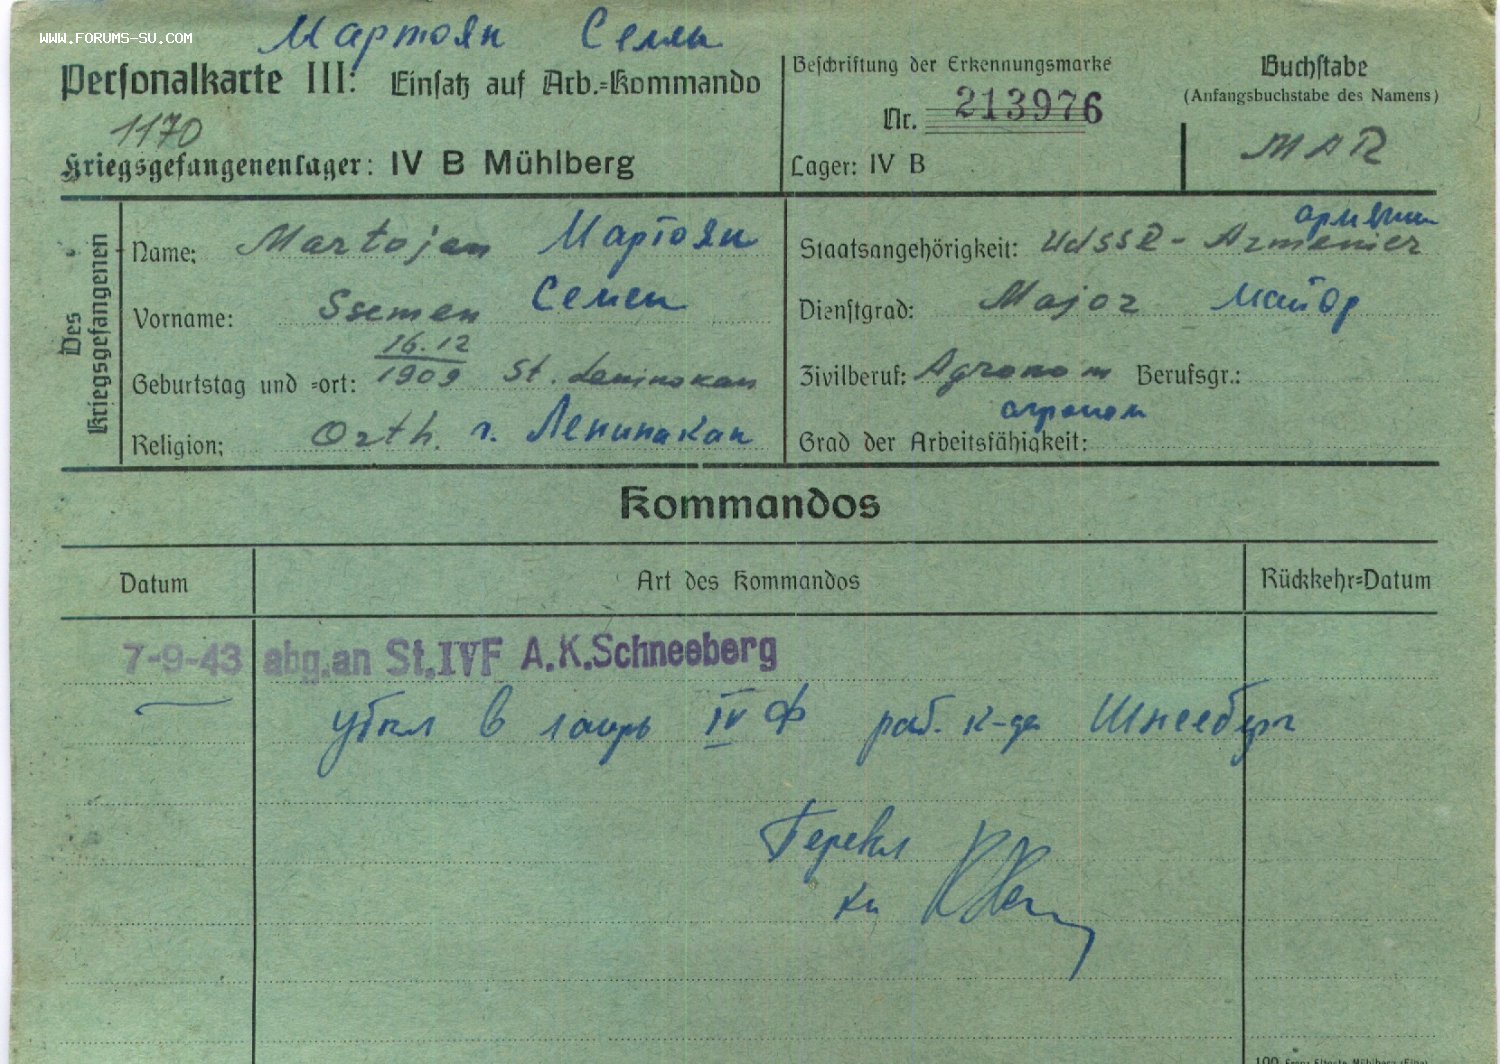 WWW.FORUMS-SU.COM
Мартоян Семен
Personalkarte III: Einsatz auf Arb.=Kommando
1170
Kriegsgefangenenlager: IV B Mühlberg
Beschriftung der Erkennungsmarke
Nr. 213976
Lager: IV B
Buchstabe
(Anfangsbuchstabe des Namens)
MAR
Des Kriegsgefangenen
Name: Martojan Мартоян
Vorname: Ssemen Семен
Geburtstag und =ort: 16.12 1909 St. Leninokan
Religion: Orth. г. Ленинакан
армянин
Staatsangehörigkeit: UdSSR - Armenier
Dienstgrad: Major Майор
Zivilberuf: Agronom Berufsgr.:
агроном
Grad der Arbeitsfähigkeit:
Kommandos
Datum Art des Kommandos Rückkehr=Datum
7-9-43 abg.an St.IVF A.K.Schneeberg
убыл в лагерь IV Ф раб. к-да Шнееберг
Перевел